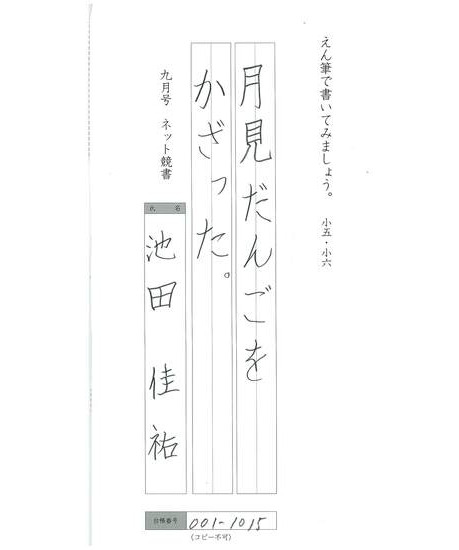 えん筆で書いてみましょう。 小五・小六
月見だんごを
かざった。
九月号 ネット競書
氏名
池田 佳祐
台帳番号 001-1015
(コピー不可)